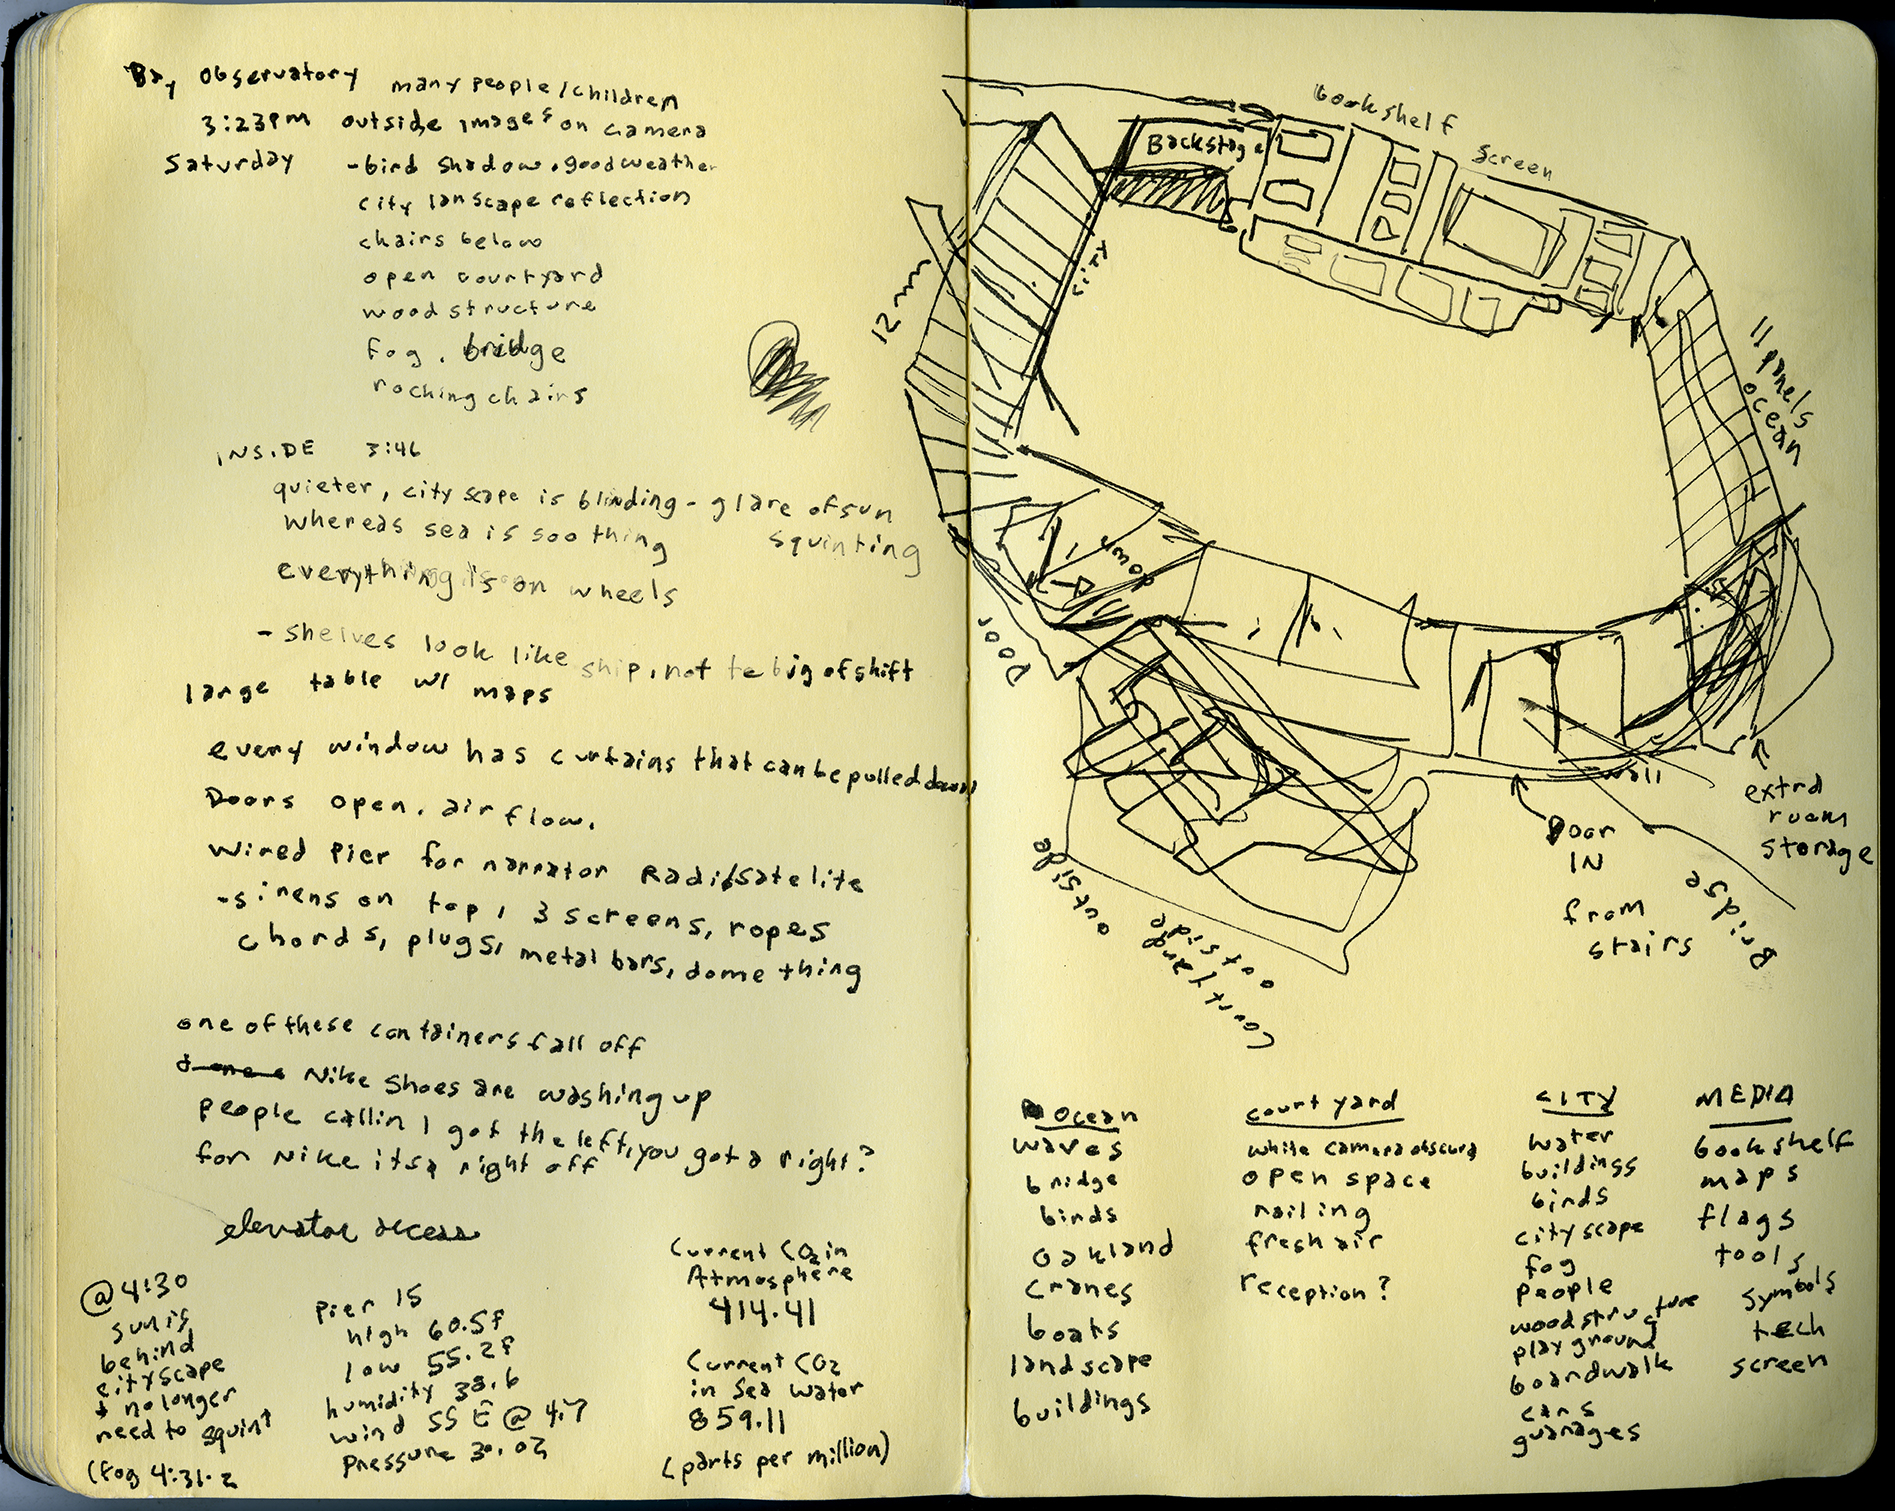 Bay Observatory many people/children
3:23pm outside images on camera
Saturday -bird shadow. good weather
city lanscape reflection
chairs below
open courtyard
wood structure
fog. bridge
rocking chairs
INSIDE 3:46
quieter, city scape is blinding - glare of sun
whereas sea is soothing squinting
everything is on wheels
- shelves look like ship, not to big of shift
large table w/ maps
every window has curtains that can be pulled down
Doors open. air flow.
Wired Pier for narrator Radio/satelite
-sirens on top, 3 screens, ropes
chords, plugs, metal bars, dome thing
one of these containers fall off
Nike shoes are washing up
people callin I got the left, you got a right?
for Nike its a right off
elevator access
@4:30
sun is
behind
cityscape
+ no longer
need to squint
(fog 4:31.2
Pier 15
high 60.5f
low 55.2f
humidity 38.6
wind SSE @ 4.7
Pressure 30.02
Current CO2 in
Atmosphere
414.41
Current CO2
in Sea water
859.11
(parts per million)
bookshelf
Backstage
screen
city
12
11 panels
ocean
down
Door
wall
extra
room
storage
Door
IN
from
stairs
Bridge
outside
outside
Courtyard
Ocean
waves
bridge
birds
Oakland
cranes
boats
landscape
buildings
court yard
white camera obscura
open space
railing
fresh air
reception?
CITY
water
buildings
birds
cityscape
fog
people
wood structure
playground
boardwalk
cars
guarages
MEDIA
bookshelf
maps
flags
tools
symbols
tech
screen